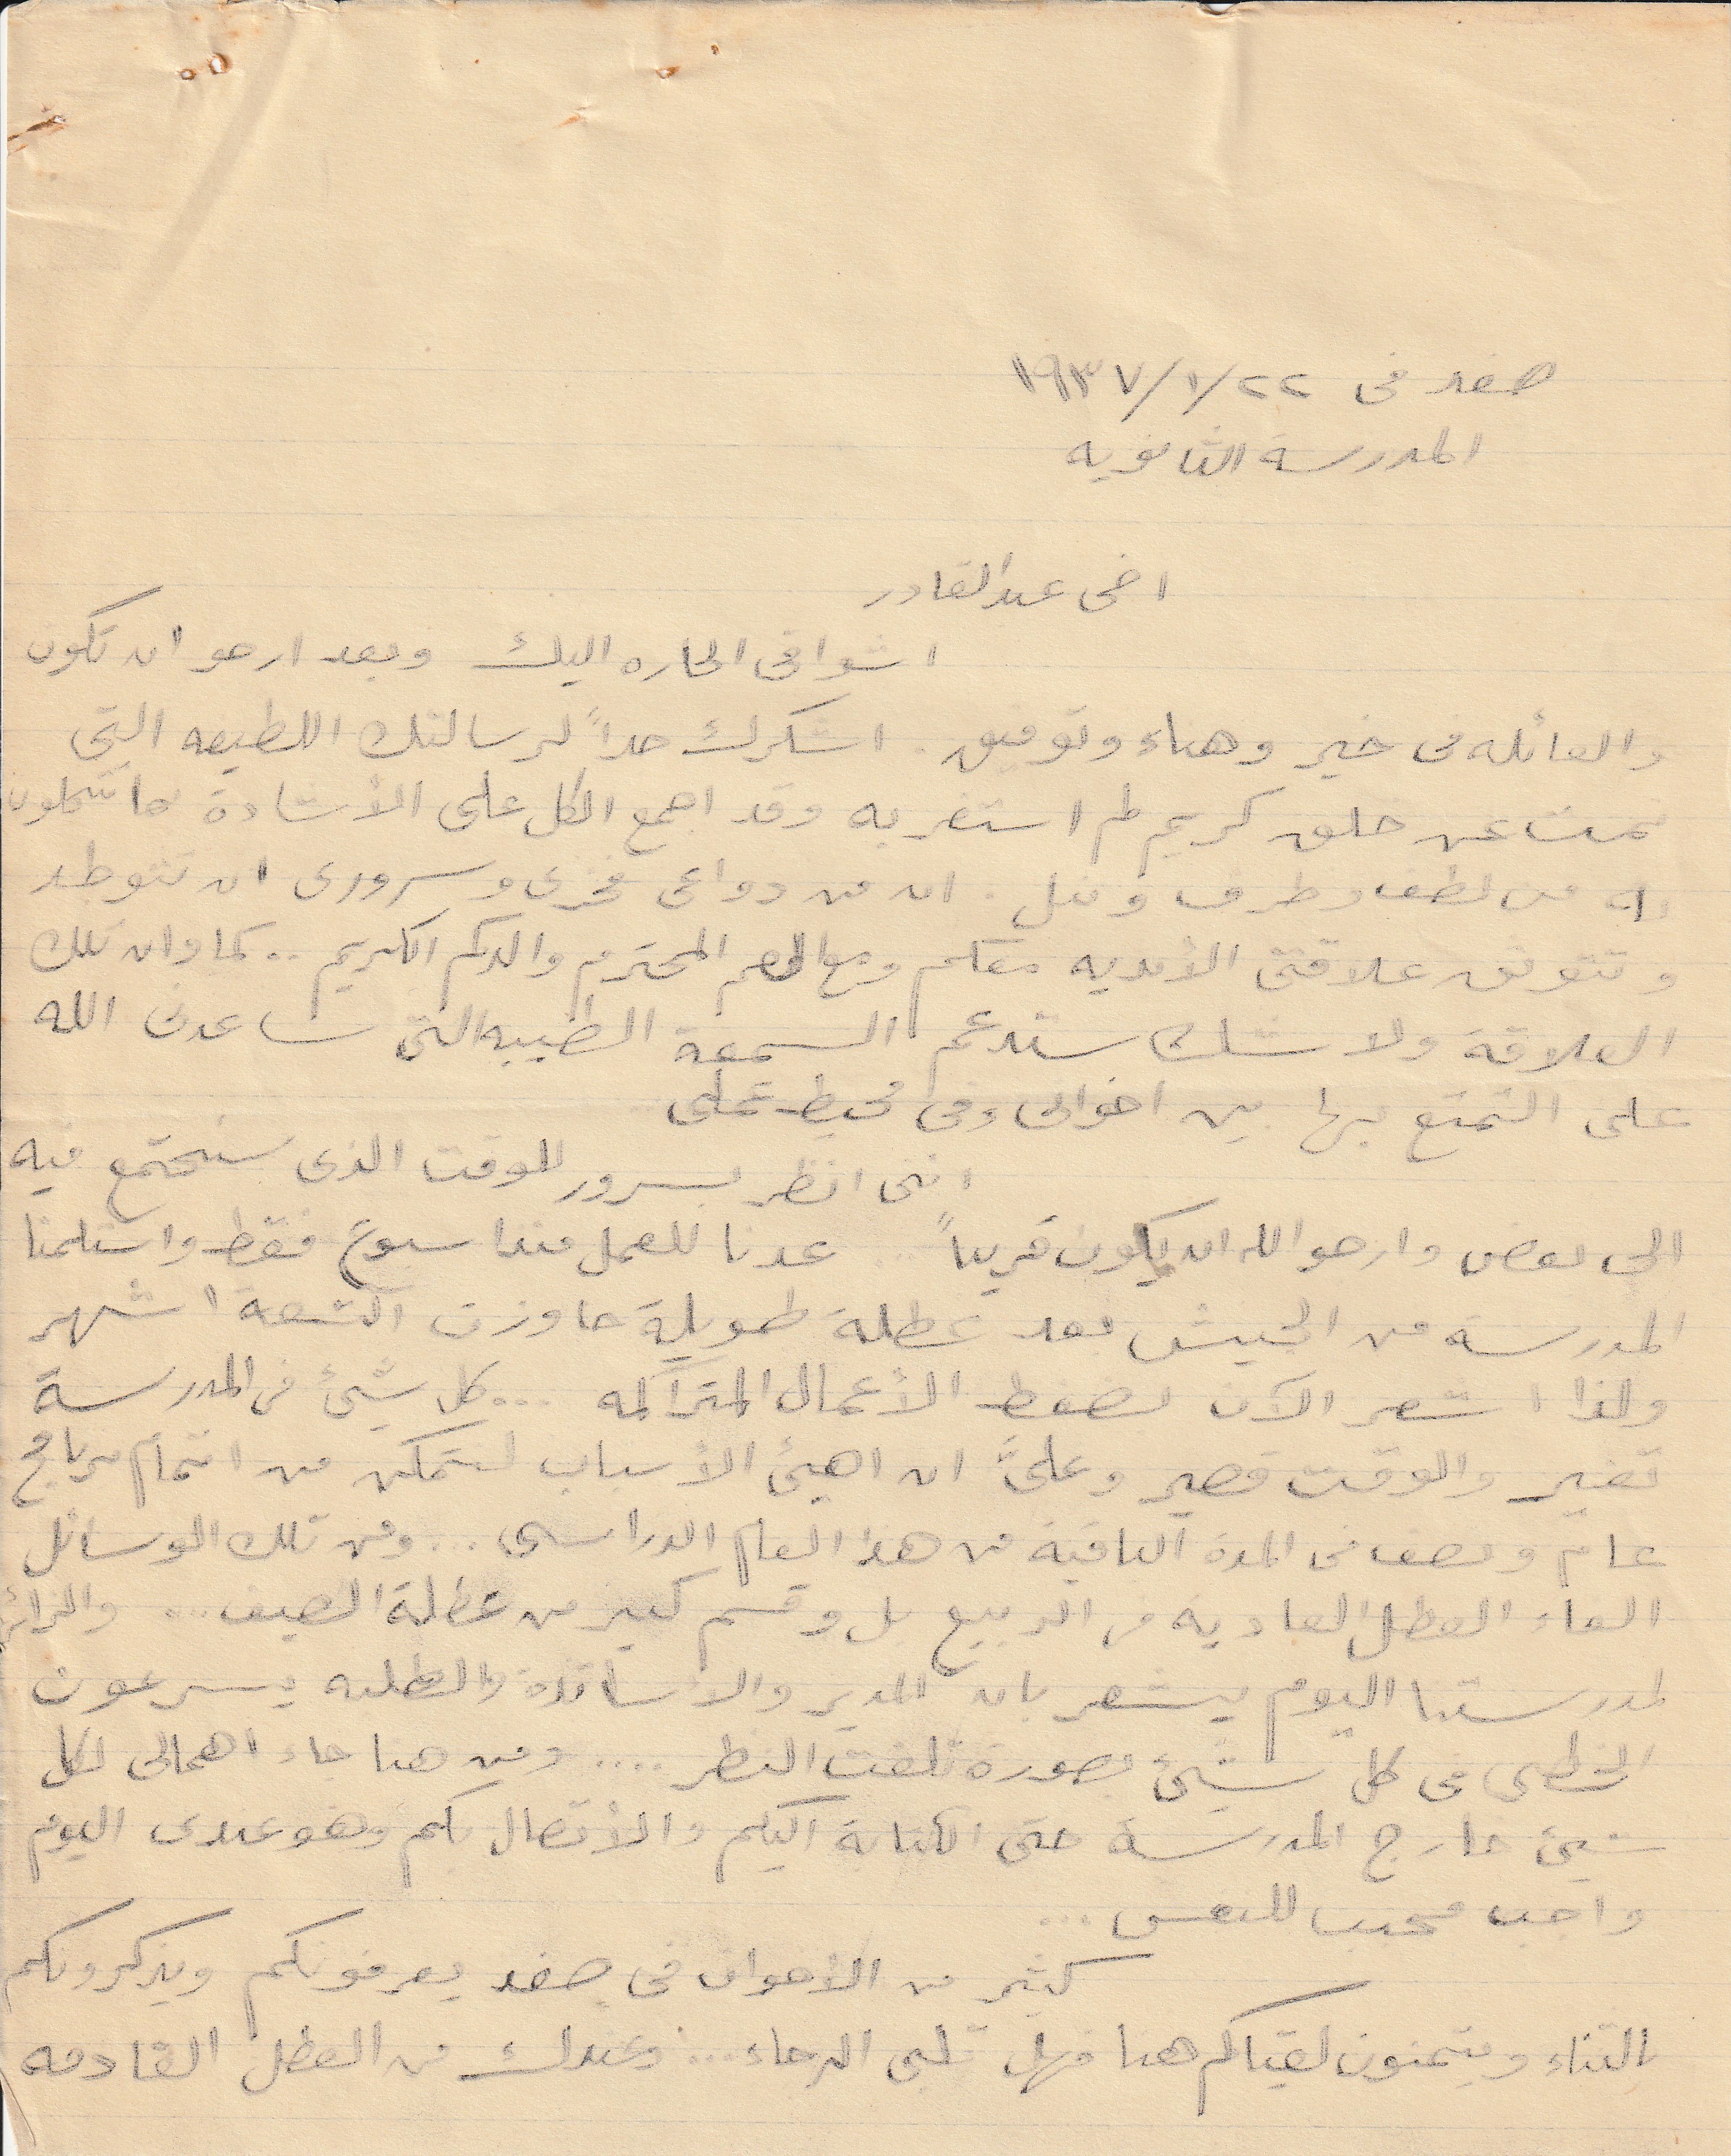 صفد في ٢٢/١/١٩٣٧
المدرسة الثانويه
اخي عبدالقادر
اشواقي الحاره اليك وبعد ارجو ان تكون
والعائله في خير وهناء وتوفيق. اشكرك جداً لرسالتك اللطيفه التي
نمت عن خلق كريم لم استغربه وقد اجمع الكل على الأشادة بما تتحلون
به من لطف وظرف ونبل. ان من دواعي فخري وسروري ان تتوطد
وتتوثق علاقتي الأدبيه معكم ومع العم المحترم والدكم الكريم.. كما وان تلك
العلاقة ولا شك ستدعم السمعة الطيبه التي ساعدني الله
على التمتع بها بين اخواني وفي محيط عملي
انني انظر بسرور للوقت الذي سنجتمع فيه
الى بعض وارجو الله ان يكون قريباً.. عدنا للعمل منذ اسبوع فقط واستلمنا
المدرسة من الجيش بعد عطلة طويلة جاوزت التسعة اشهر
ولذا اشعر الآن بضغط الأعمال المتراكمه ... كل شيئ في المدرسة
تغير والوقت قصير وعليَّ ان اهيئ الأسباب لنتمكن من اتمام برنامج
عام ونصف في المدة الباقية من هذا العام الدراسي ... ومن تلك الوسائل
الغاء العطل العادية في الربيع بل وقسم كبير من عطلة الصيف.. والزائر
لمدرستنا اليوم يشعر بان المدير والأساتذة والطلبه يسرعون
الخطى في كل شيئ بصورة تلفت النظر .... ومن هنا جاء اهمالي لكل
شيئ خارج المدرسة حتى الكتابة اليكم والأتصال بكم وهو عندي اليوم
واجب محبب للنفس ...
كثير من الأخوان في صفد يعرفونكم ويذكرونكم
بالثناء ويتمنون لقياكم هنا فهل تلبي الرجاء... وعندك من العطل القادمه